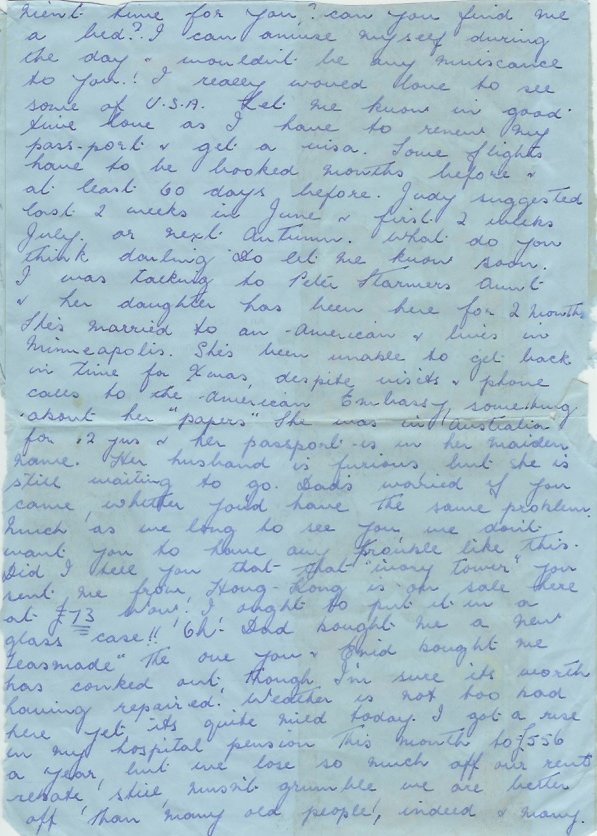 nient time for you? can you find me
a bed? I can amuse myself during
the day & wouldn't be any nuiscance
to you! I really would love to see
some of U.S.A. Let me know in good
time love as I have to renew my
pass-port & get a visa. Some flights
have to be booked months before &
at least 60 days before. Judy suggested
last 2 weeks in June & first 2 weeks
July. or next Autumn. What do you
think darling Do let me know soon.
I was talking to Peter Starmers Aunt
& her daughter has been here for 2 months
She's married to an American & lives in
Minneapolis. She's been unable to get back
in time for Xmas, despite visits & phone
calls to the American Embassy something
about her "papers" She was in Australia
for 2 yrs & her passport is in her maiden
name. Her husband is furious but she is
still waiting to go. Dads worried if you
came, whether you'd have the same problem.
Much as we long to see you we don't
want you to have any trouble like this.
Did I tell you that that "ivory tower" you
sent me from Hong-Kong is on sale here
at £73 Wow! I ought to put it in a
glass case!! Oh! Dad bought me a new
"Teasmade" the one you & Enid bought me
has conked out, though I'm sure its worth
having repaired. Weather is not too bad
here yet, its quite mild today. I got a rise
in my hospital pension this month to £556
a year, but we lose so much off our rent
rebate, still, musn't grumble we are better
off than many old people, indeed & many.